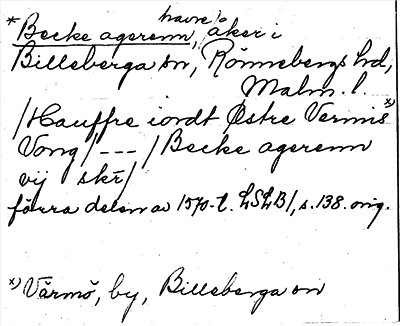 *Becke agerenn, havre åker i
Billeberga sn, Rönnebergs hd,
Malm. l.
/Hauffre iordt Østre Vermis x)
Vong/ --- /Becke agerenn
vij skr̄/
förra delen av 1570-t. LSLB/, s. 138. orig.
x) Värmö, by, Billeberga sn